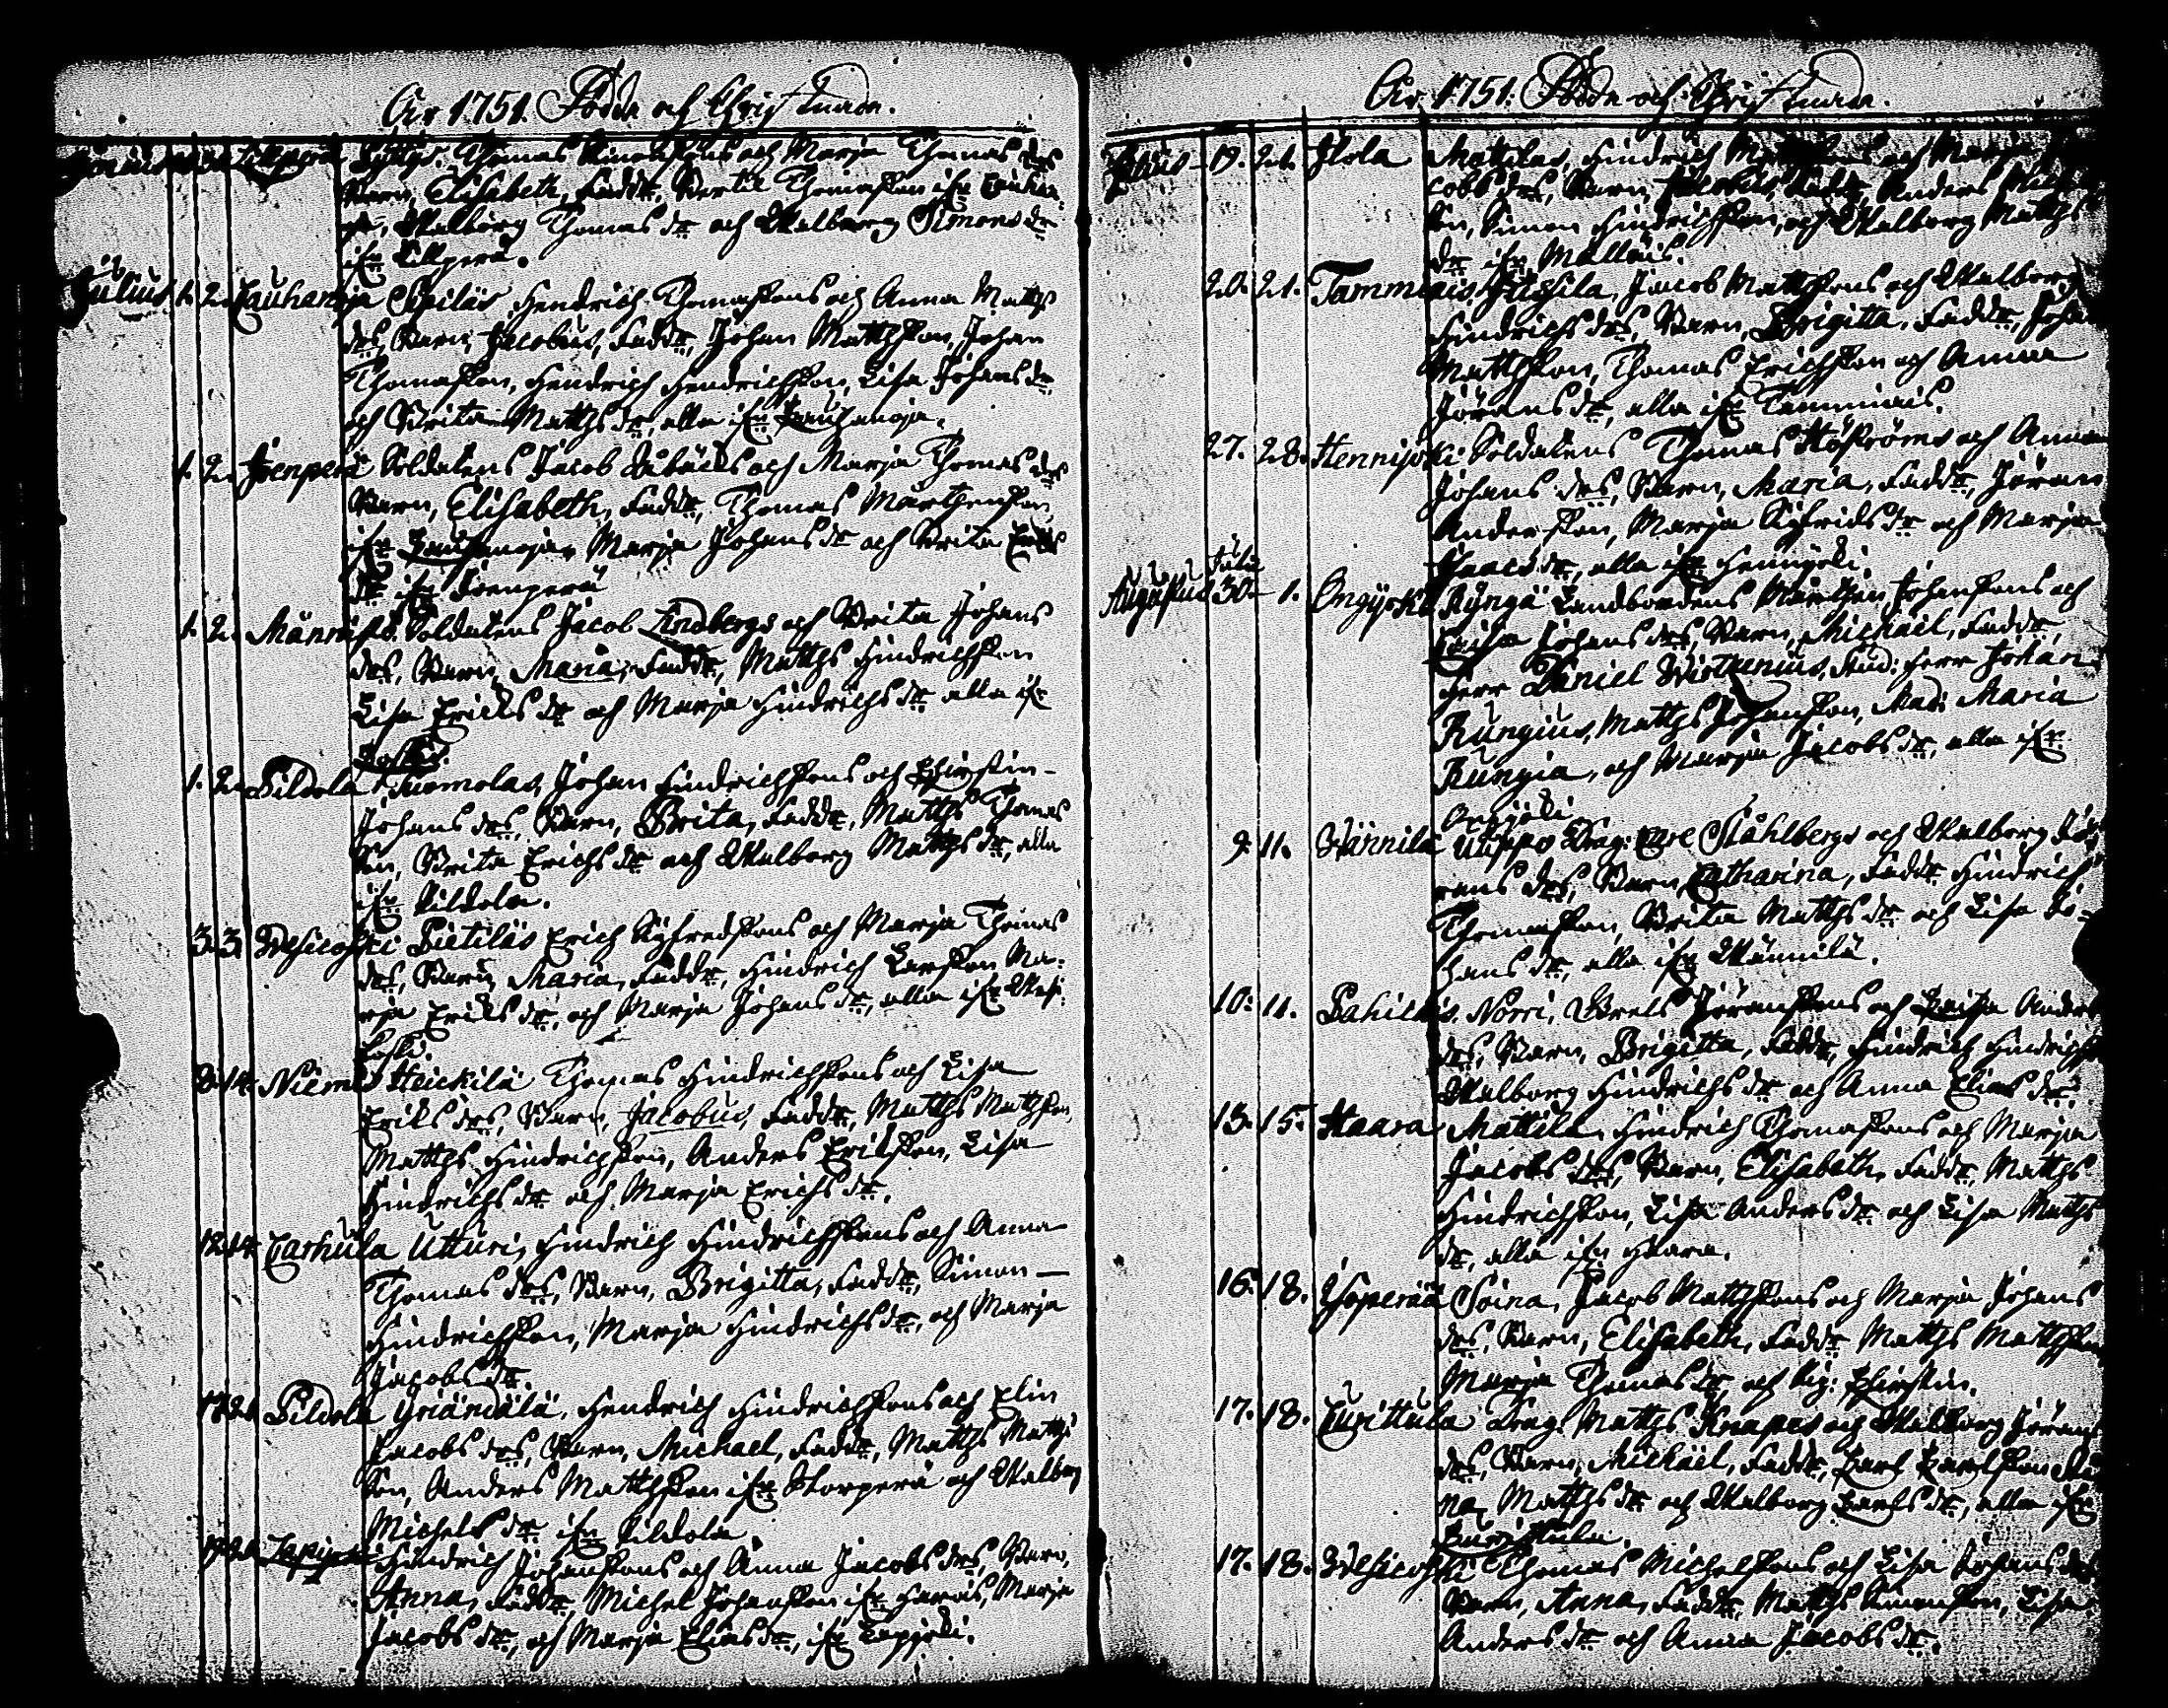 År 1751. Födda och Christnade.
Skyttys. Thomas Simonssons och Marja Thomas drs
Barn, Elisabeth, Faddr, Bertil Thomasson ifr Lauha-
oja, Walborg Thomas dr och Walborg Simons dr
ifr Killperä.
Julius 1. 2. Lauhanoja Seppäläs, Hendrich Thomassons och Anna Matts
drs, Barn, Jacobus, Faddr, Johan Mattsson, Johan
Thomasson, Hendrich Hendrichsson, Lisa Johans dr
och Brita Matths dr alla ifr Lauhanoja.
1. 2. Isenperä Soldatens Jacob och Marja Thomas drs
Barn, Elisabeth, Faddr, Thomas Mårtensson
ifr Lauhanoja, Marja Johans dr och Brita Erics
dr ifr Isenperä
1. 2. Männistö Soldatens Jacob Lindbergs och Brita Johans
drs, Barn, Maria, Faddr, Matths Hindrichsson
Lisa Erichs dr och Marja Hindrichs dr alla ifr
1. 2. Pildola Johan Hindrichssons och Chirstin
Johans drs, Barn, Brita, Faddr, Matths Thomas
son, Brita Erichs dr och Walborg Matths dr, alla
ifr Pildola.
3. 3. Wesicoski Pietiläs Erich Sigfredssons och Marja Thomas
drs, Barn, Maria, Faddr, Hindrich Larsson, Ma-
rja Erichs dr, och Marja Johans dr, alla ifr Wesi-
koski.
8. 14. Niemis Heickilä Thomas Hindrichssons och Lisa
Eriks drs, Barn, Jacobus, Faddr, Matths Mattsson,
Matths Hindrichsson, Anders Eriksson, Lisa
Hindrichs dr och Marja Erichs dr.
12. 14. Carhula Utturi, Hindrich Hindrichssons och Anna
Thomas drs, Barn, Brigitta, Faddr, Simon
Hindrichsson, Marja Hindrichs dr, och Marja
Jacobs dr.
Pildola Yrjänälä, Hendrich Hindrichssons och Elin
Jacobs drs, Barn, Michael, Faddr, Matths Matths
son, Anders Mattsson ifr Korperä och Walborg
Michels dr ifr Pildola.
Hindrich Johanssons och Anna Jacobs drs, Barn,
Anna, Faddr, Michel Johansson ifr Harois, Marja
Jacobs dr, och Marja Elias dr, ifr Lapijoki.
År 1751. Födda och Christnade.
Julius 19. 21. Ilola Mattilas, Hindrich och Marja
cobs drs, Barn, Jacobus, Faddr, Anders Michel
son, Simon Hindrichsson, och Walborg Matths
dr ifr Mallais.
20. 21. Tammiais, Jussila, Jacob Mattssons och Walborg
Hindrichs drs, Barn, Brigitta, Faddr, Johan
Mattsson, Thomas Erichsson och Anna
Jörans dr, alla ifr Tammiais.
27. 28. Hennijoki Soldatens Thomas Höströms och Anna
Johans drs, Barn, Maria, Faddr, Jöran
Andersson, Marja Sigfrids dr och Marja
Isacs dr, alla ifr Hennijoki.
Augustus Julii 30. 1. Ongijoki Ryngä Landbondens Mårthen Johanssons och
Caisa Johans drs, Barn, Michael, Faddr,
Herr Daniel Wirtzenius, Stud: Herr Johan
Rungius, Matths Johansson, Mad: Maria
Rungia, och Marja Jacobs dr, alla ifr
Ongijoki
9. 11. Wännilä Uhippo Drag: Carl Ståhlbergs och Walborg Jö-
rans drs, Barn, Catharina, Faddr, Hindrich
Thomasson, Brita Matths dr och Lisa Jo-
hans dr, alla ifr Wännilä.
10. 11. Pahickais, Norri, Brels Jöranssons och Caisa Anders
drs, Barn, Brigitta, Faddr, Hindrich Hindrichss
Walborg Hindrichs dr och Anna Elias dr.
13. 15. Haara Mattila, Hindrich Thomassons och Marja
Jacobs drs, Barn, Elisabeth, Faddr, Matths
Hindrichsson, Lisa Anders dr och Lisa Matths
dr, alla ifr Haara.
16. 18. Isoperää Soina, Jacob Mattssons och Marja Johans
drs, Barn, Elisabeth, Faddr, Matths Mattsson
Marja Thomas dr och Pig: Chirstin.
17. 18. Curittula Drag: Matths Knapes och Walborg Jörans
drs, Barn, Michael, Faddr, Carl Carlsson
na Matths dr och Walborg Carls dr, alla ifr
Curittula.
17. 18. Wesicoski Thomas Michelssons och Lisa Johans drs
Barn, Anna, Faddr, Matths Simonsson, Lisa
Anders dr och Anna Jacobs dr.